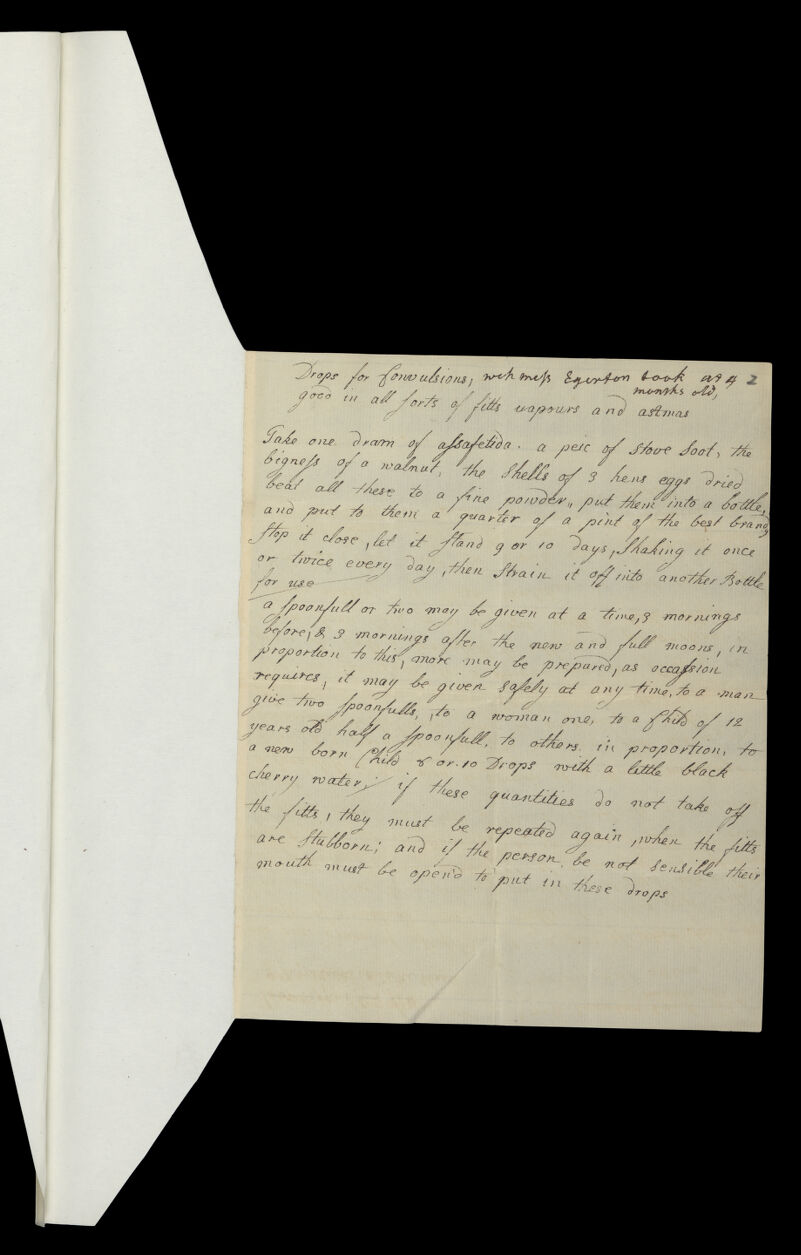 Drops for Convulsions, wch miss Egerton took at 4 2
months old,
good in all sorts of fitts vapours and astmas
Take one dram of assafetida. a peic of stove soot, the
bigness of a walnut, the shells of 3 hens eggs dried
beat all these to a fine powder, put them into a bottle,
and put to them a quarter of a pint of the best brandy
stop it close, let it stand 9 or 10 days, shaking it once
or twice every day, then strain it off into another Bottle
for use
a spoonfull or two may be given at a time, 3 mornings
before, & 3 mornings after the new and full moons, in
proportion to this, more may be prepared, as occassion
requires, it may be given safely at any time, to a man
give two spoonfulls, to a woman one, to a Child of 12
years old half a spoonfull, to others in proportion, to
a new born Child 8 or 10 Drops with a little black
cherry water; if these quantities do not take off
the fitts, they must be repeated again, when the fitts
are stubborn; and if the person be not sensible their
mouth must be open'd to put in these drops